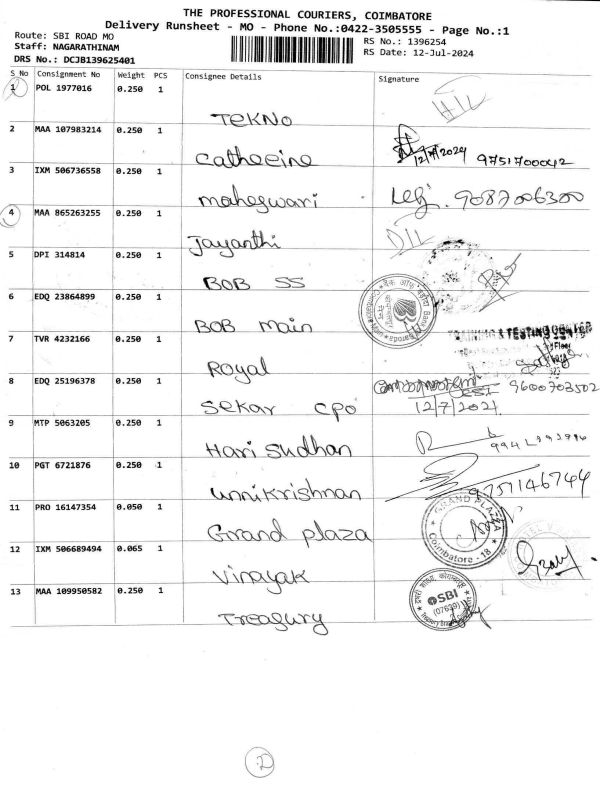 THE PROFESSIONAL COURIERS, COIMBATORE
Delivery Runsheet - MO - Phone No.:0422-3505555 - Page No.:1
Route: SBI ROAD MO
RS No.: 1396254
Staff: NAGARATHINAM
RS Date: 12-Jul-2024
DRS No.: DCJB139625401
S No Consignment No Weight PCS Consignee Details Signature
1 POL 1977016 0.250 1
TEKNO
2 MAA 107983214 0.250 1
Catheeine 12/7/2024 9751700042
3 IXM 506736558 0.250 1
maheswari 9087006300
4 MAA 865263255 0.250 1
Jayanthi
5 DPI 314814 0.250 1
BOB SS
6 EDQ 23864899 0.250 1
BOB main
7 TVR 4232166 0.250 1
TRAINING & TESTING CENTER
Floor
Royal
8 EDQ 25196378 0.250 1
9600703502
Sekar CPO 12/7/2021
9 MTP 5063205 0.250 1
Hari Sudhan
10 PGT 6721876 0.250 1
unnikrishnan 9751146744
11 PRO 16147354 0.050 1
GRAND PLAZZA
Grand plaza Coimbatore - 18
12 IXM 506689494 0.065 1
Vinayak
13 MAA 109950582 0.250 1
SBI
Treasury
2